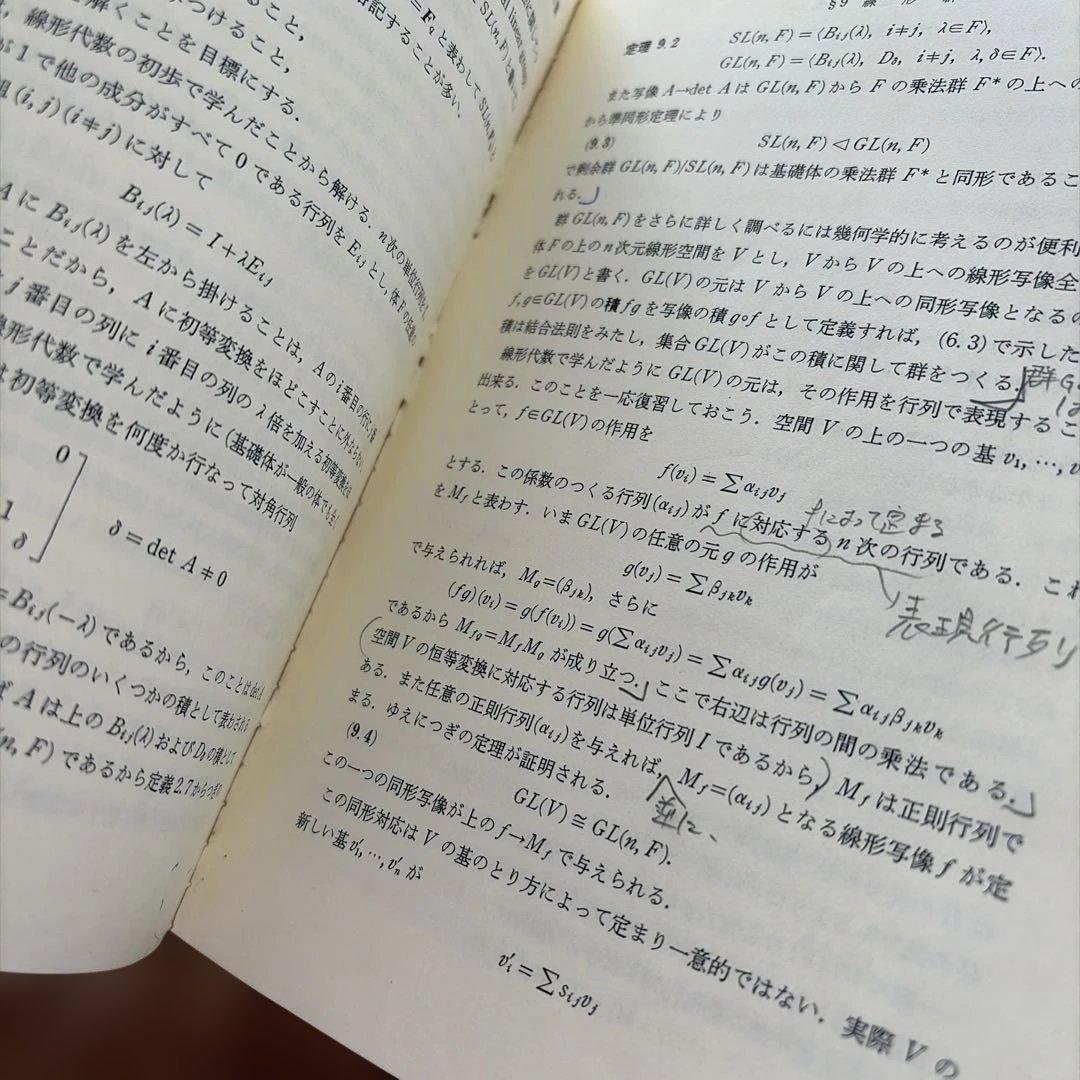 ること,
つけること,
解くことを目標にする.
線形代数の初歩で学んだことから解ける. n次の単位行列を
が1で他の成分がすべて0である行列を E_{ij} とし, 体 F の
組(i, j)(i≠j)に対して
B_{ij}(λ)=I+λE_{ij}
A に B_{ij}(λ) を左から掛けることは, A の i 番目の行に
ことだから, A に初等変換をほどこすことに外ならない.
j 番目の列に i 番目の列の λ 倍を加える初等変換
線形代数で学んだように(基礎体が一般の体でも
初等変換を何度か行なって対角行列
0
1
δ
δ=det A≠0
=B_{ij}(-λ)であるから, このことは
の行列のいくつかの積として表わされる
A は上の B_{ij}(λ) および D_δ の積として
(n, F)であるから定義2.7からつぎの
=F_q と表わして SL(n,
略記することが多い.
§9 線 形
定理 9.2 SL(n, F)=⟨B_{ij}(λ), i≠j, λ∈F⟩,
GL(n, F)=⟨B_{ij}(λ), D_δ, i≠j, λ, δ∈F⟩.
また写像 A→det A は GL(n, F) から F の乗法群 F* の上への
から準同形定理により
(9.3) SL(n, F)◁GL(n, F)
で剰余群 GL(n, F)/SL(n, F) は基礎体の乗法群 F* と同形であるこ
れる.」
群 GL(n, F) をさらに詳しく調べるには幾何学的に考えるのが便利
体 F の上の n 次元線形空間を V とし, V から V の上への線形写像全
を GL(V) と書く. GL(V) の元は V から V の上への同形写像となるの
f, g∈GL(V) の積 fg を写像の積 g∘f として定義すれば, (6.3)で示した
積は結合法則をみたし, 集合 GL(V) がこの積に関して群をつくる.」群G
線形代数で学んだように GL(V) の元は, その作用を行列で表現するこ
出来る. このことを一応復習しておこう. 空間 V の上の一つの基 v_1, …, v
とって, f∈GL(V) の作用を
f(v_i)=∑α_{ij}v_j
fによって定まる
とする. この係数のつくる行列(α_{ij})が f に対応する n 次の行列である. これ
を M_f と表わす. いま GL(V) の任意の元 g の作用が
表現行列
g(v_j)=∑β_{jk}v_k
で与えられれば, M_g=(β_{jk}), さらに
(fg)(v_i)=g(f(v_i))=g(∑α_{ij}v_j)=∑α_{ij}g(v_j)=∑α_{ij}β_{jk}v_k
であるから M_{fg}=M_fM_g が成り立つ.」ここで右辺は行列の間の乗法である.」
(空間 V の恒等変換に対応する行列は単位行列 I であるから,) M_f は正則行列で
ある. また任意の正則行列(α_{ij})を与えれば, M_f=(α_{ij})となる線形写像 f が定
逆に、
まる. ゆえにつぎの定理が証明される.
(9.4) GL(V)≅GL(n, F).
この一つの同形写像が上の f→M_f で与えられる.
この同形対応は V の基のとり方によって定まり一意的ではない. 実際 V の
新しい基 v'_1, …, v'_n が
v'_i=∑s_{ij}v_j